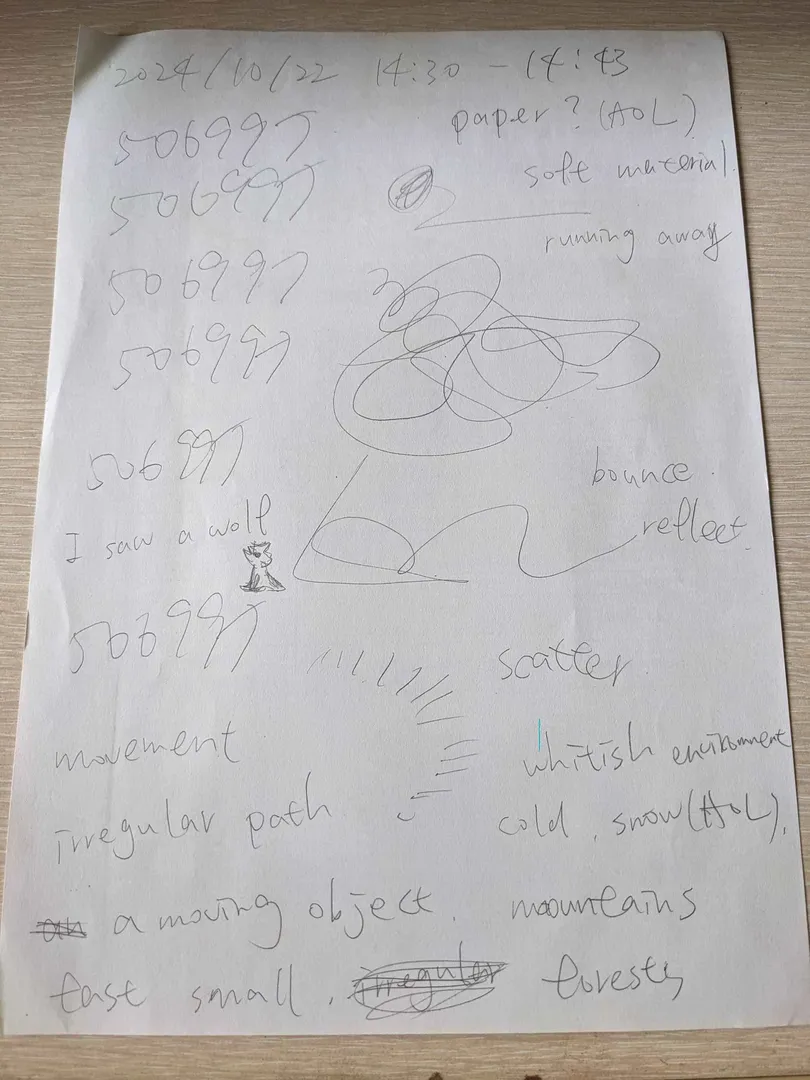 2024/10/22 14:30 - 14:43
506997
paper? (AOL)
506997
soft material.
running away
506997
506997
506997
bounce.
I saw a wolf
reflect.
506997
scatter.
movement
whitish enviromnent
irregular path
cold, snow (AOL),
a moving object. mountains
fast small. irregular forests